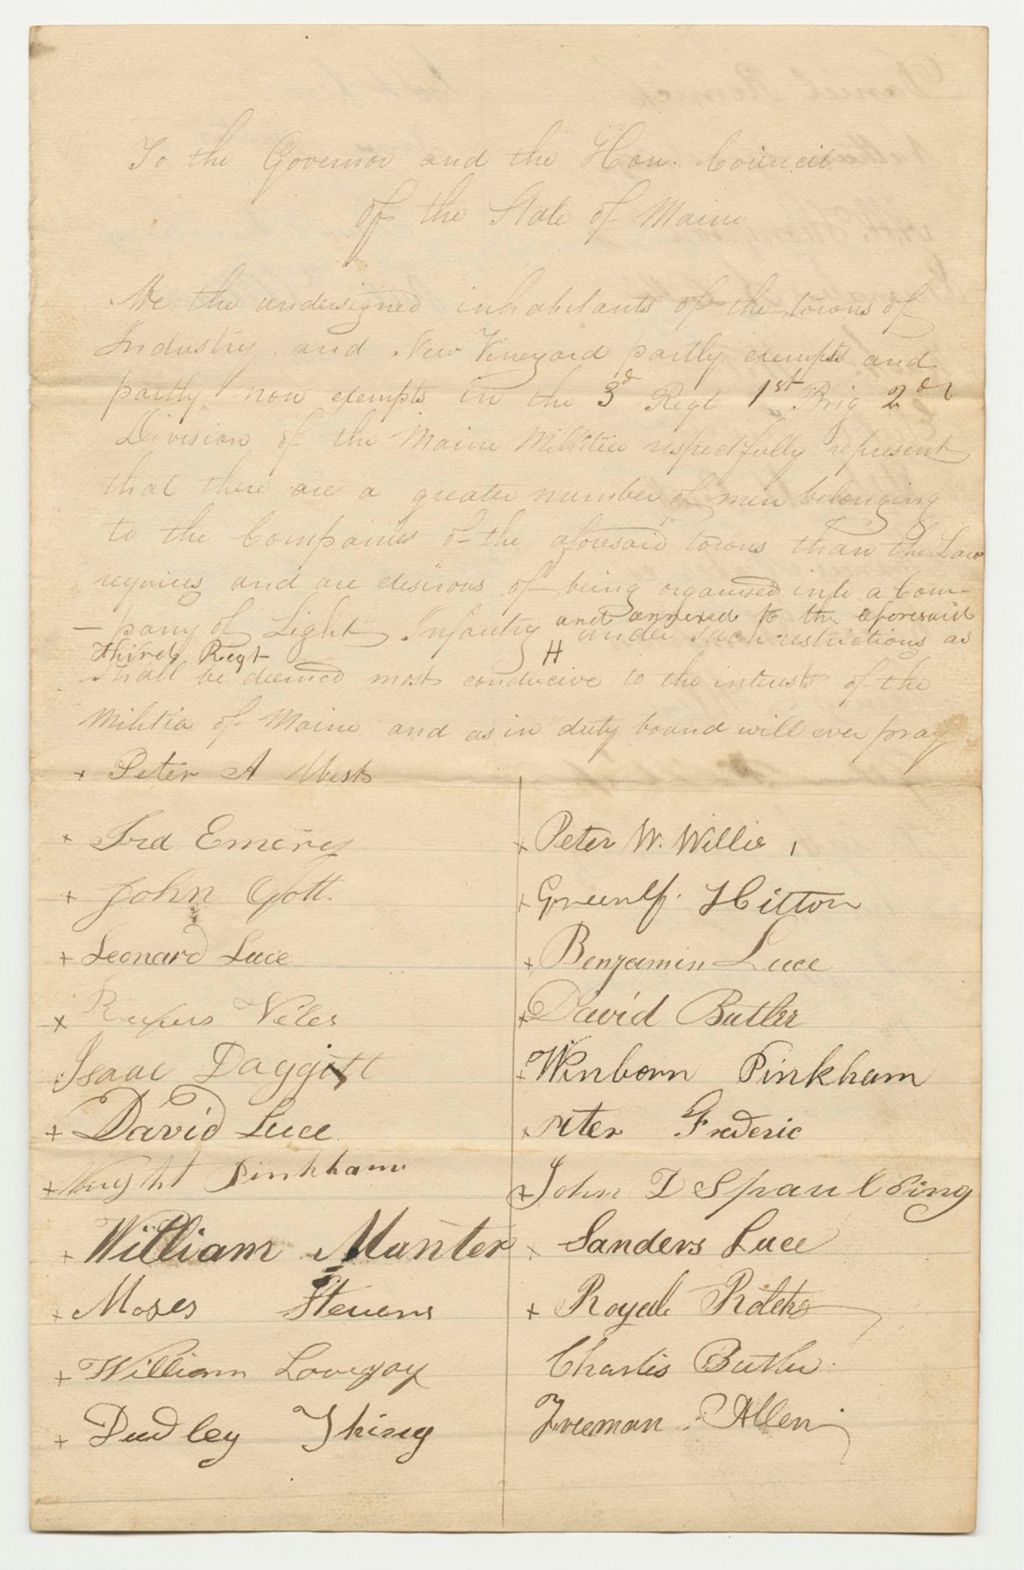 To the Governor and the Hon. Council
of the State of Maine
We the undersigned inhabitants of the towns of
Industry and New Vineyard partly exempts and
partly non exempts in the 3d Regt 1st Brig 2nd
Division of the Maine Militia respectfully represent
that there are a greater number of men belonging
to the Companies of the aforesaid towns than the Law
requires and are desirous of being organised into a Com-
- pany of Light Infantry and annexed to the aforesaid
Third Regt under such restrictions as
shall be deemed most conducive to the interests of the
Militia of Maine and as in duty bound will ever pray
+ Peter A West
+ Ira Emery
+ John Gott
+ Leonard Luce
+ Rufus Viles
Isaac Daggett
+ David Luce
+ Pinkham
+ William Manter
+ Moses Stevens
+ William Lovejoy
+ Dudley Thing
+ Peter W. Willis
+ Greenlf. Hilton
+ Benjamin Luce
+ David Butler
+ Winborn Pinkham
+ Peter Frederic
+ John D Spaulding
+ Sanders Luce
+ Royal
Charles Butler
Freeman Allen